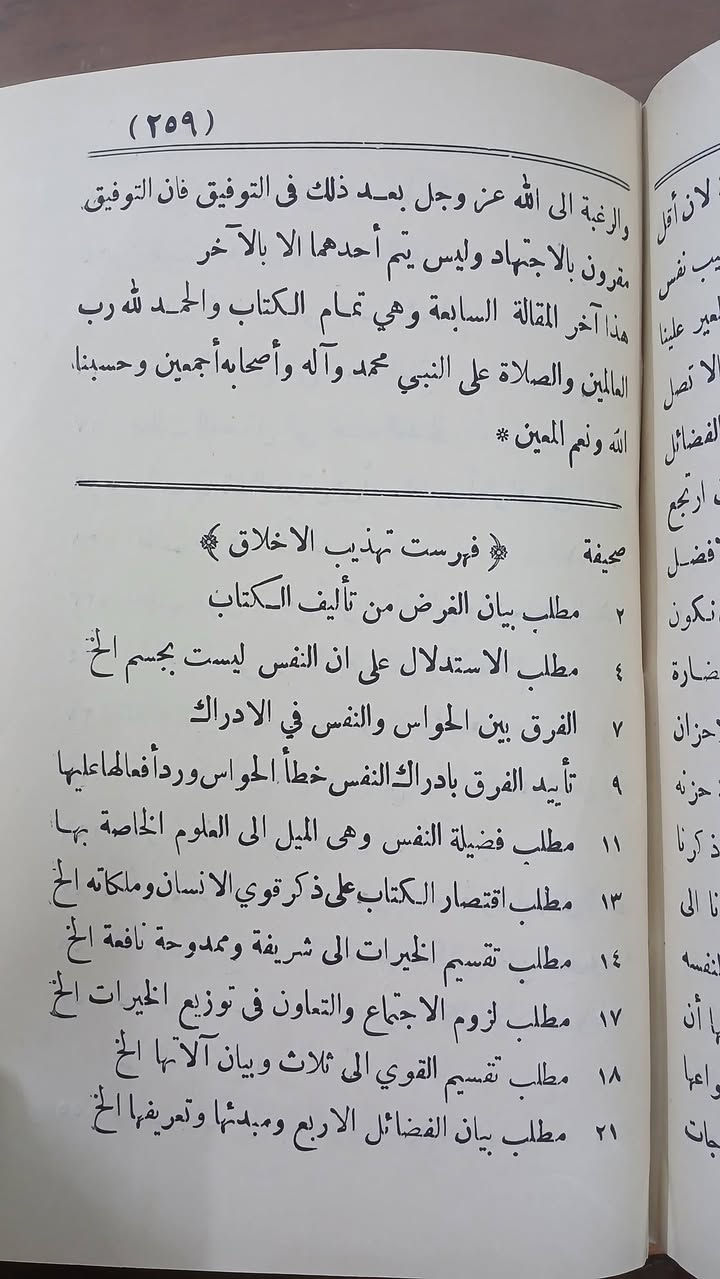 (٢٥٩)
والرغبة الى الله عز وجل بعـد ذلك فى التوفيق فان التوفيق
مقرون بالاجتهاد وليس يتم أحدهما الا بالآخر
هذا آخر المقالة السابعة وهي تمـام الكتاب والحمـد لله رب
العالمين والصلاة على النبي محمد وآله وأصحابه أجمعين وحسبنا
الله ونعم المعين *
صحيفة ﴿ فهرست تهذيب الاخلاق ﴾
٢ مطلب بيان الغرض من تأليف الـكتاب
٤ مطلب الاستدلال على ان النفس ليست بجسم الخ
٧ الفرق بين الحواس والنفس في الادراك
٩ تأييد الفرق بادراك النفس خطأ الحواس ورد أفعالها عليها
١١ مطلب فضيلة النفس وهى الميل الى العلوم الخاصة بهـا
١٣ مطلب اقتصار الـكتاب على ذكر قوي الانسان وملكاته الخ
١٤ مطلب تقسيم الخيرات الى شريفة وممدوحة نافعة الخ
١٧ مطلب لزوم الاجتماع والتعاون فى توزيع الخيرات الخ
١٨ مطلب تقسيم القوي الى ثلاث وبيان آلاتها الخ
٢١ مطلب بيان الفضائل الاربع ومبدئها وتعريفها الخ
لان أقل
نفس
علينا
الا تصل
الفضائل
ارتجع
حزنه
ذكرنا
الى
أن